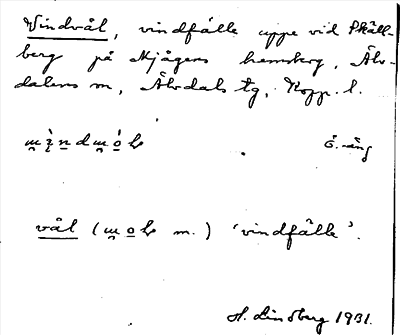 Vindvål, vindfälle uppe vid Skåll-
berg på Mjågens hemskog, Älv-
dalens sn, Älvdals tg, Kopp. l.
Ö.-äng
vål ( m.) 'vindfälle'.
H. Lindberg 1931.